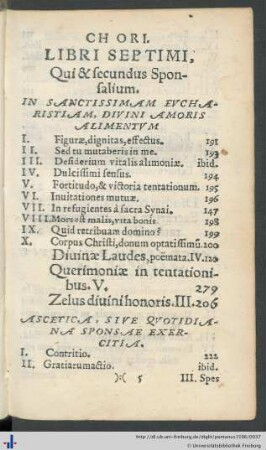 CHORI.
LIBRI SEPTIMI,
Qui & secundus Spon-
salium.
IN SANCTISSIMAM EVCHA-
RISTIAM, DIVINI AMORIS
ALIMENTVM
I. Figuræ, dignitas, effectus. 191
II. Sed tu mutaberis in me. 193
III. Desiderium vitalis alimoniæ. ibid.
IV. Dulcissimi sensus. 194
V. Fortitudo, & victoria tentationum. 195
VI. Inuitationes mutuæ. 196
VII. In refugientes à sacra Synaxi. 147
VIII. Mors est malis, vita bonis. 198
IX. Quid retribuam domino? 199
X. Corpus Christi, donum optatissimū. 200
Diuinæ Laudes, poëmata. IV. 120
Querimoniæ in tentationi-
bus. V. 279
Zelus diuini honoris. III. 206
ASCETICA, SIVE QVOTIDIA-
NA SPONSAE EXER-
CITIA.
I. Contritio. 222
II. Gratiarum actio. ibid.
5 III. Spes
© Universitätsbibliothek Freiburg